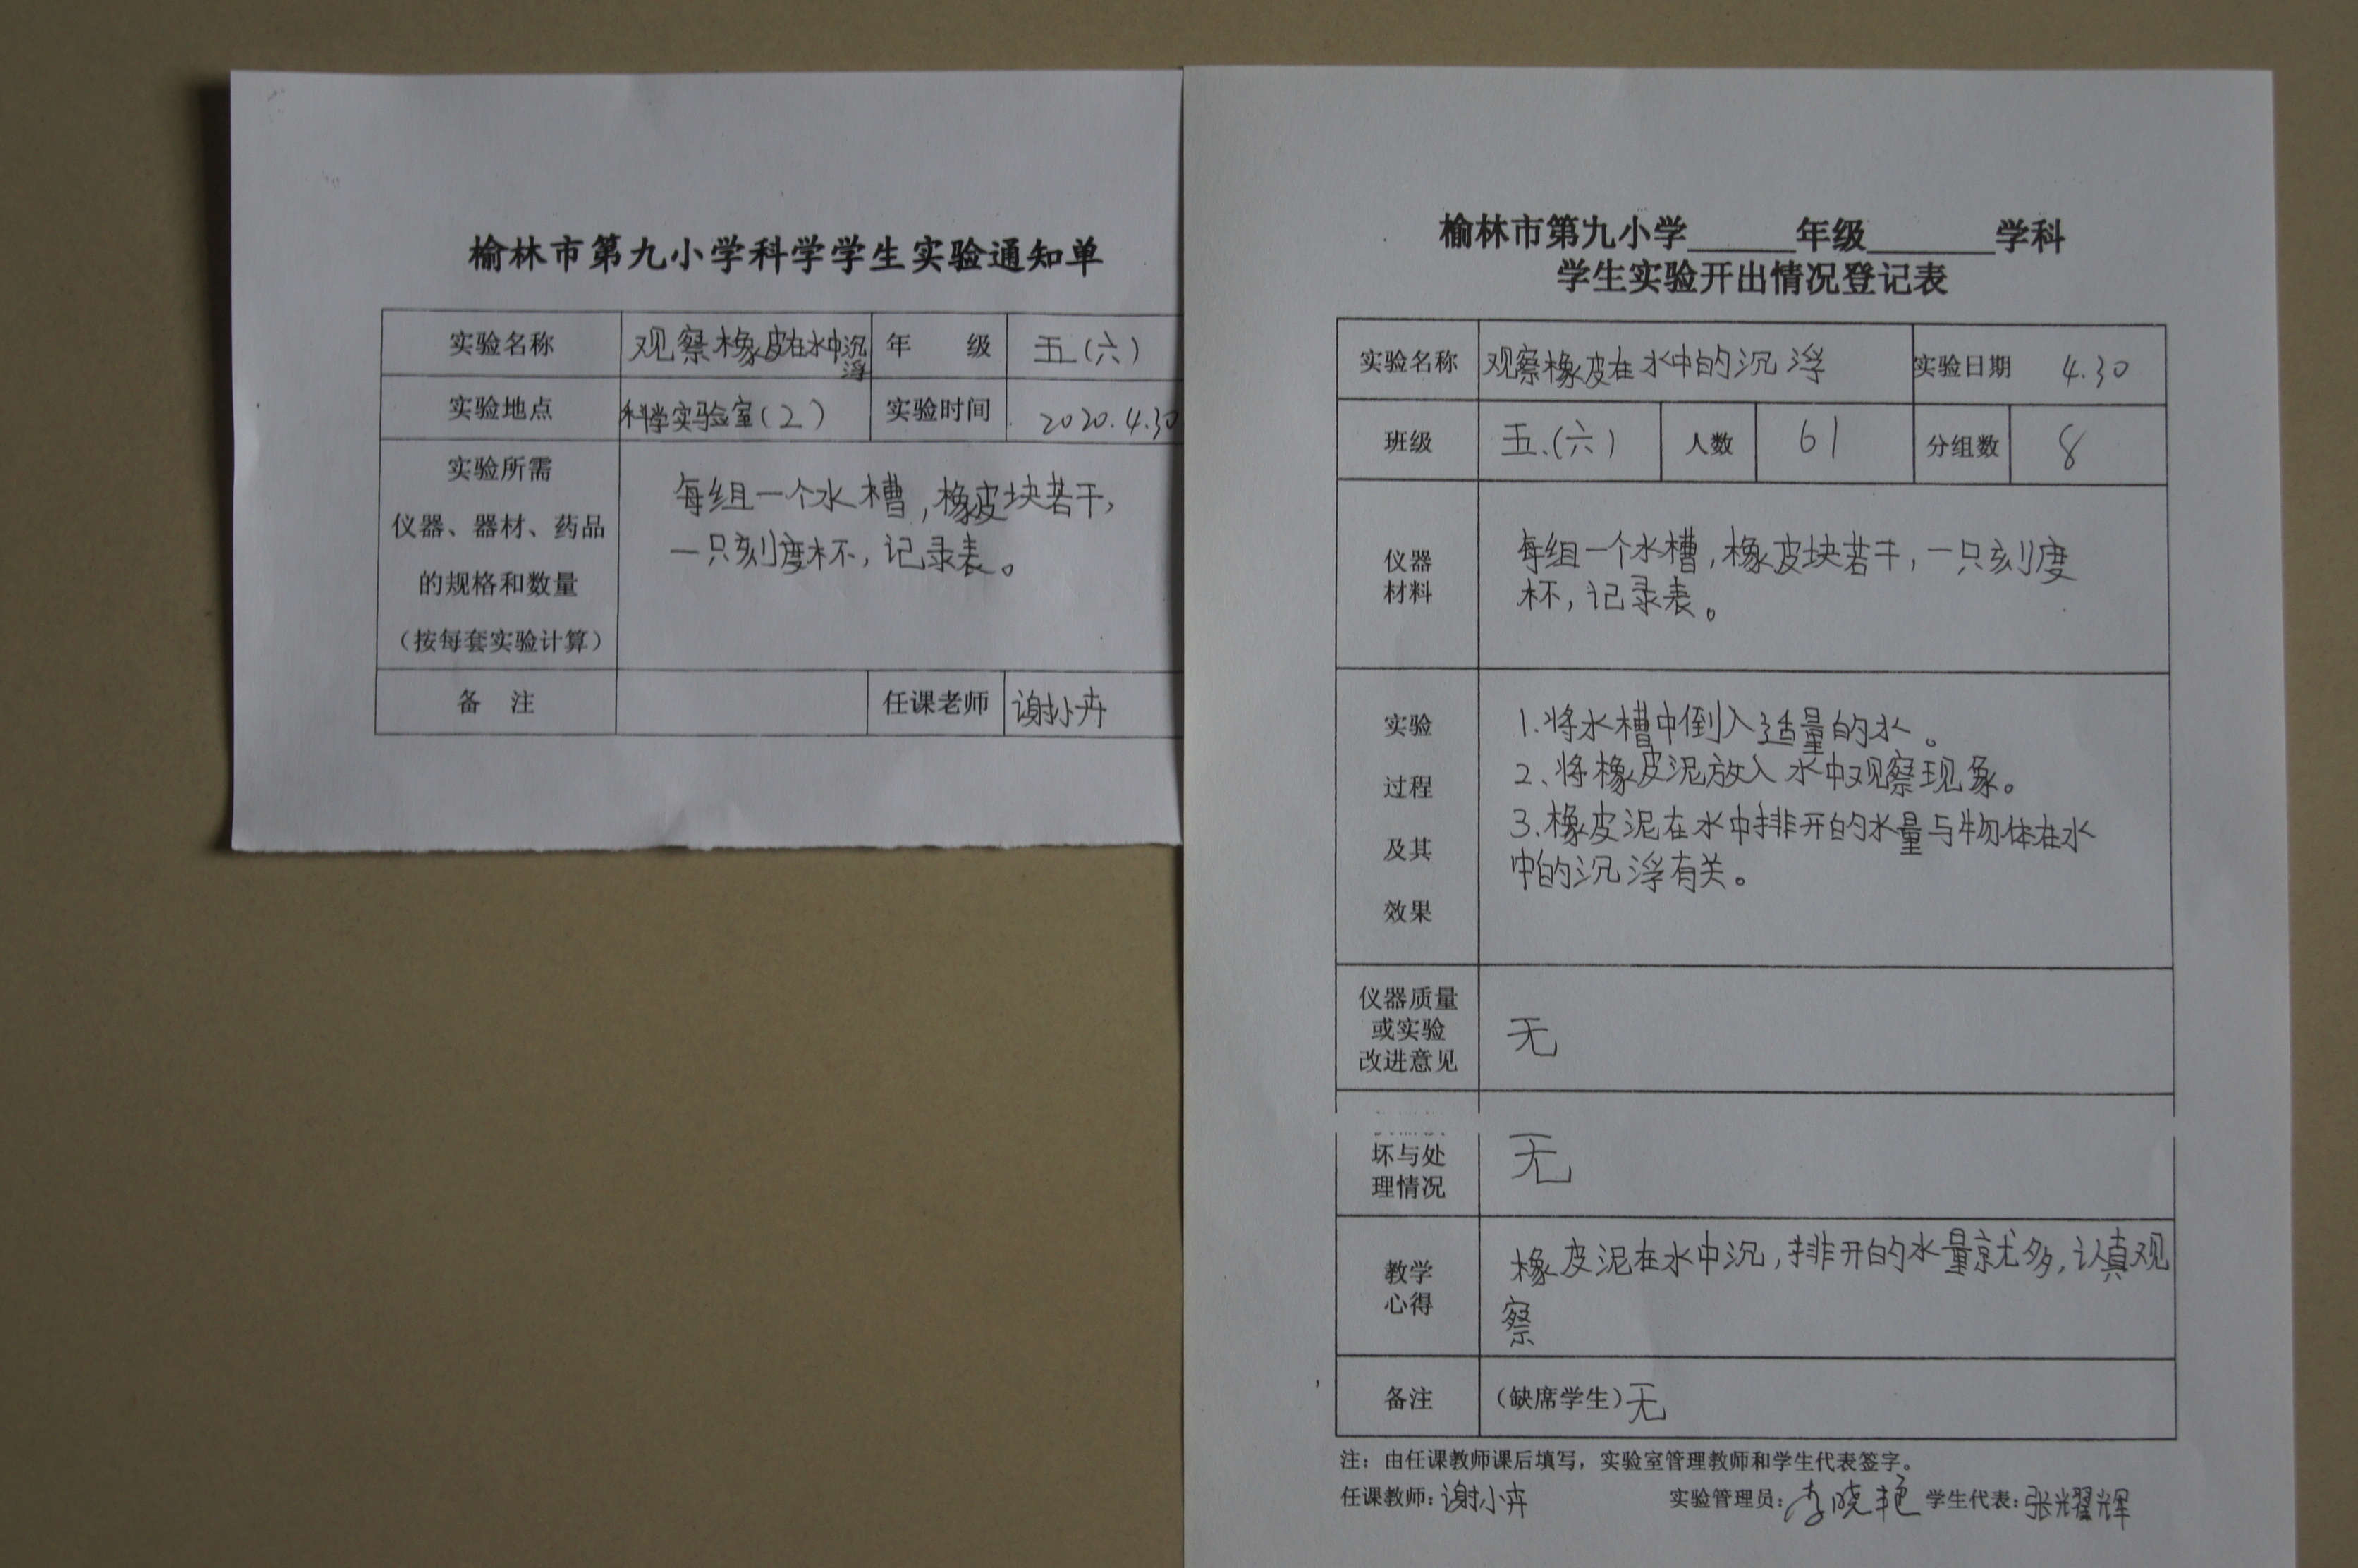 榆林市第九小学科学学生实验通知单
实验名称 观察橡皮在水中沉浮 年 级 五(六)
实验地点 科学实验室(2) 实验时间 2020.4.30
实验所需
仪器、器材、药品
的规格和数量
(按每套实验计算)
每组一个水槽,橡皮块若干,
一只刻度杯,记录表。
备 注 任课老师 谢小卉
榆林市第九小学______年级______学科
学生实验开出情况登记表
实验名称 观察橡皮在水中的沉浮 实验日期 4.30
班级 五.(六) 人数 61 分组数 8
仪器
材料
每组一个水槽,橡皮块若干,一只刻度
杯,记录表。
实验
过程
及其
效果
1.将水槽中倒入适量的水。
2、将橡皮泥放入水中观察现象。
3.橡皮泥在水中排开的水量与物体在水
中的沉浮有关。
仪器质量
或实验
改进意见
无
坏与处
理情况
无
教学
心得
橡皮泥在水中沉,排开的水量就多,认真观
察
备注 (缺席学生)无
注:由任课教师课后填写,实验室管理教师和学生代表签字。
任课教师:谢小卉 实验管理员:李晓艳 学生代表:张耀辉